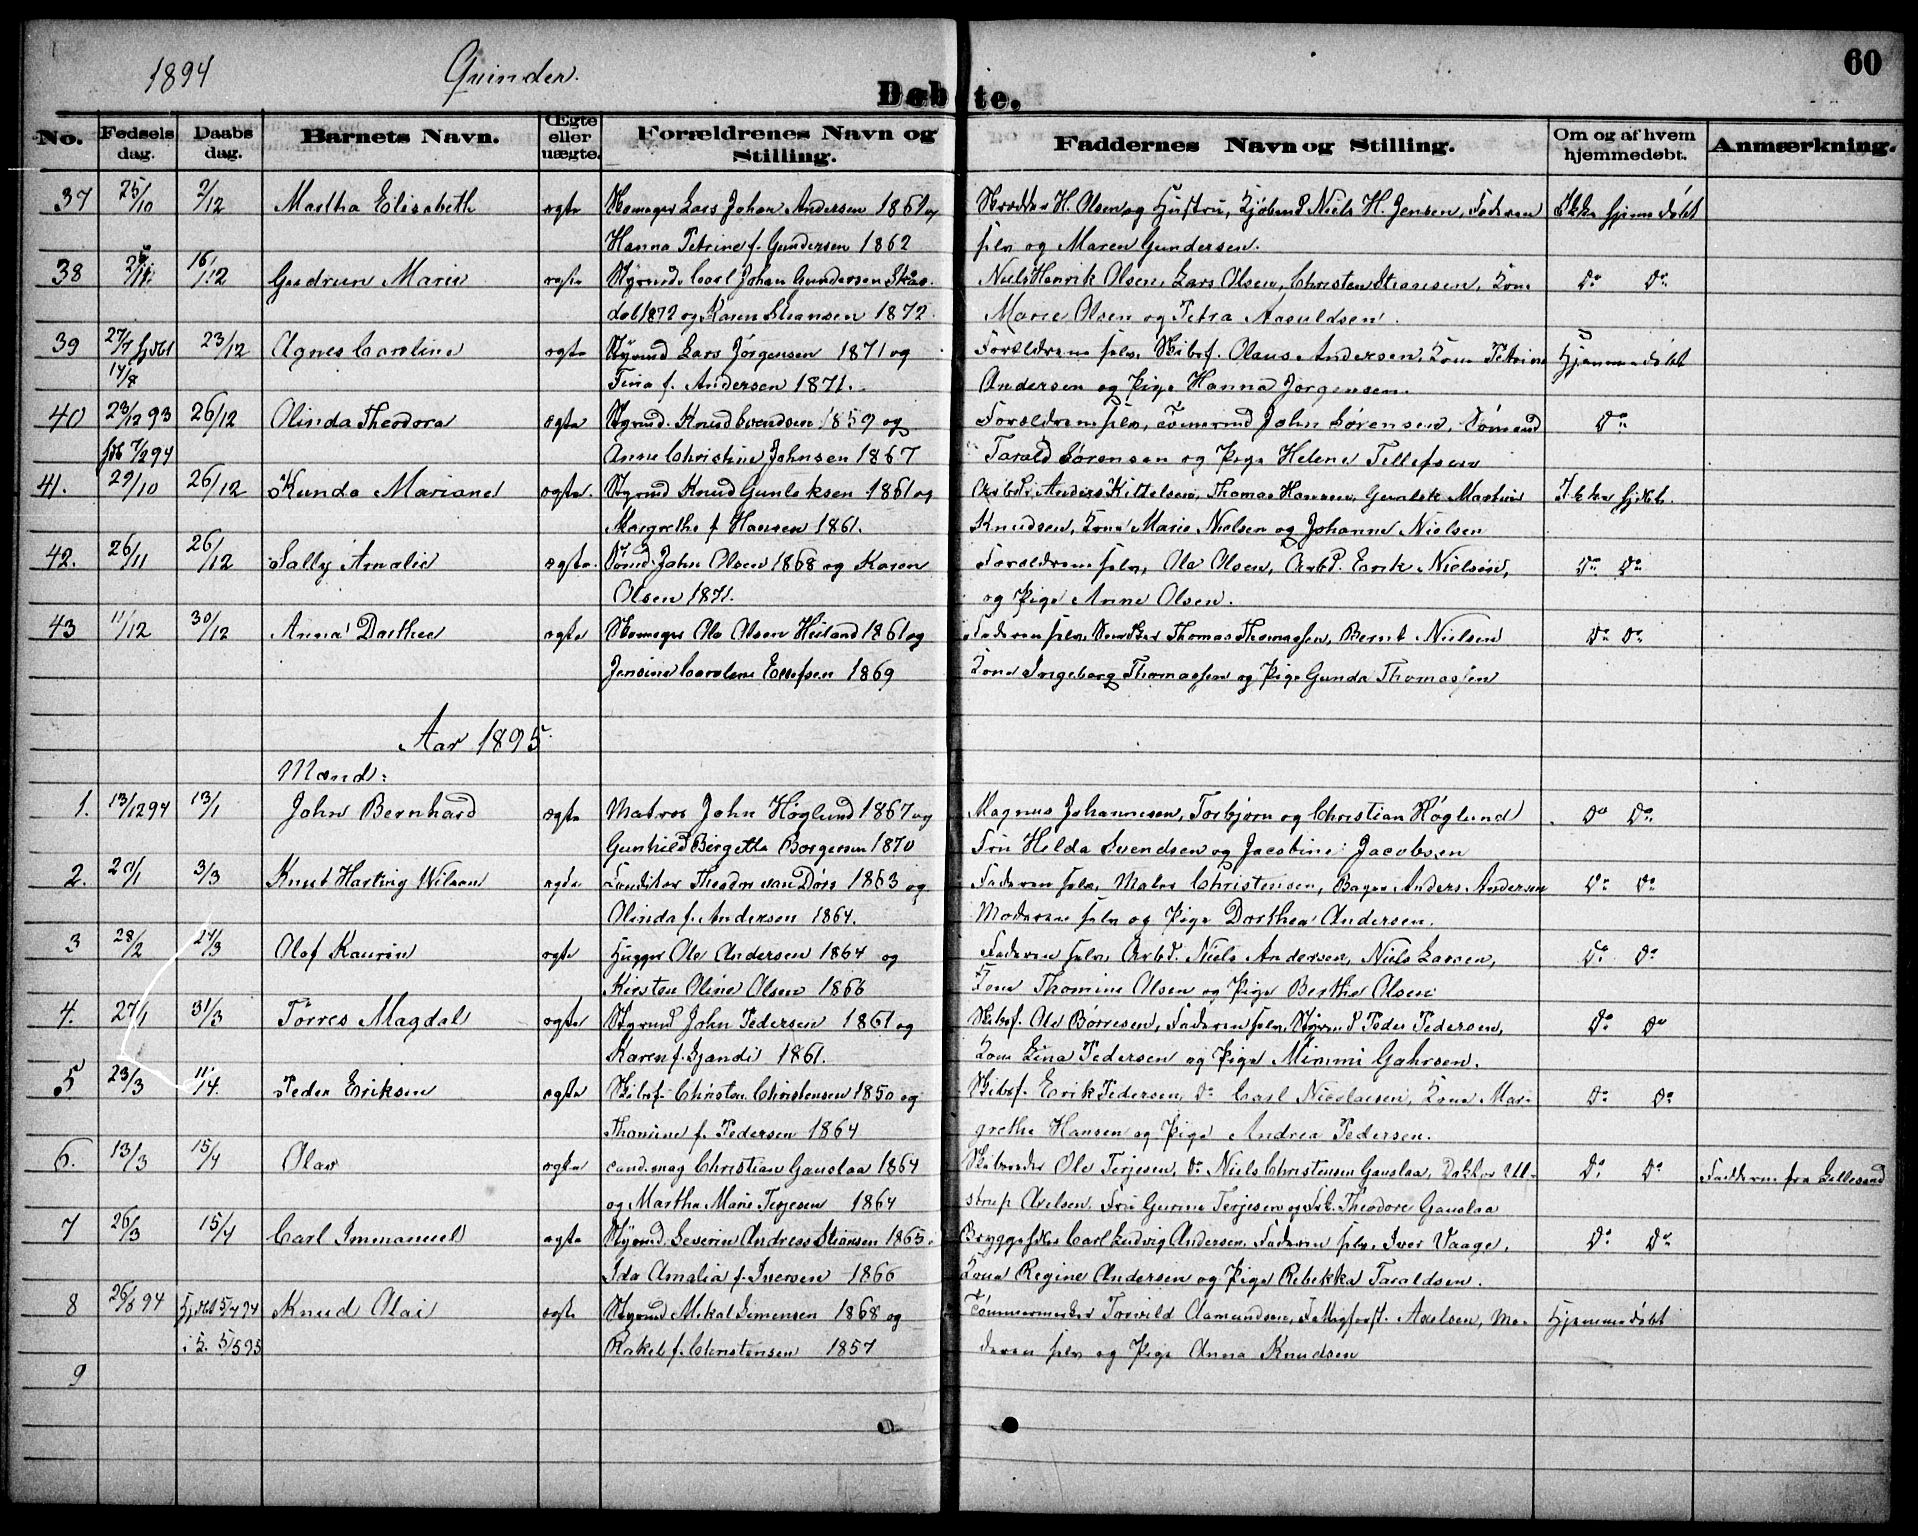 60
1894 Qvinder.
Døbte.
No. Fødsels dag. Daabs dag. Barnets Navn. Ægte eller uægte. Forældrenes Navn og Stilling. Faddernes Navn og Stilling. Om og af hvem hjemmedøbt. Anmærkning.
37 25/10 2/12 Martha Elisabeth ægte Skomager Lars Johan Andersen 1861 og Skrædder H. Olsen og Hustru, Kjøbmd Niels H. Jensen, Faderen Ikke hjemmedøbt
Hanna Petrine f. Gundersen 1862 selv og Maren Gundersen.
38 16/12 Gudrun Marie ægte Styrmd. Carl Johan Gundersen Skaa- Niels Henrik Olsen, Lars Olsen, Christen Stiansen, Kone Do Do
dal 1872 og Karen Stiansen 1872. Marie Olsen og Petra Aasuldsen.
39 27/7 hjdbt 23/12 Agnes Caroline ægte Styrmd Lars Jørgensen 1871 og Forældrene selv, Skibsf. Olaus Andersen, Kone Petrine Hjemmedøbt
14/8 Tina f. Andersen 1871. Andersen og Pige Hanna Jørgensen.
40 23/12 93 26/12 Olinda Theodora ægte Styrmd. Knud Svendsen 1859 og Forældrene selv, Tømmermd John Sørensen, Sømand Do
7/2 94 Anne Christine Johnsen 1867 Tarald Sørensen og Pige Helene Tellefsen
41. 29/10 26/12 Kunda Mariane ægte. Styrmd Knud Gunleksen 1861 og Arbd. Anders Kittelsen, Thomas Hansen, Gunlek Martin Ikke hjdbt.
Margrethe f. Hansen 1861. Knudsen, Kone Marie Nielsen og Johanne Nielsen
42. 26/11 26/12 Sally Amalie ægte. Sømd. John Olsen 1868 og Karen Forældrene selv, Ole Olsen, Arbd. Enrik Nielsen, Do Do
Olsen 1871. og Pige Anne Olsen.
43 11/12 30/12 Anna Dorthea ægte Skomager Ole Olsen Heiland 1861 og Faderen selv, Snedker Thomas Thomassen, Bernt Nielsen Do Do
Jensine Caroline Ellefsen 1869 Kone Ingeborg Thomassen og Pige Gunda Thomassen
Aar 1895.
Mænd:
1. 13/12 94 13/1 John Bernhard ægte Matros John Høglund 1867 og Magnus Johannesen, Torbjørn og Christian Høglund Do Do
Gunhild Birgetha Borgersen 1870 Fru Helda Svendsen og Jacobine Jacobsen
2. 20/1 3/3 Knut Harting Wilson ægte Konditor Theodor van Dørs 1863 og Faderen selv, Maler Christensen, Bager Anders Andersen Do Do
Olinda f. Andersen 1864. Moderen selv og Pige Dorthea Andersen.
3 28/2 24/3 Olof Kaurin ægte Hugger Ole Andersen 1864 og Faderen selv, Arbd. Niels Andersen, Niels Larsen, Do Do
Kirsten Oline Olsen 1866 Kone Thomine Olsen og Pige Berthe Olsen
4. 27/1 31/3 Torres Magdal ægte Styrmd John Pedersen 1861 og Skibsf. Ole Børresen, Faderen selv, Styrmd Peder Pedersen, Do Do
Karen f. Gjandi 1861. Kone Lina Pedersen og Pige Mimmi Gahrsen.
5 23/3 11/4. Peder Eriksen ægte Skibsf. Christen Christensen 1850 og Skibsf. Erik Pedersen, Do Carl Nicolaisen, Kone Mar- Do Do
Thomine f. Pedersen 1864 grethe Hansen og Pige Andrea Pedersen.
6. 13/3 15/4 Olav ægte cand. mag Christian Gauslaa 1864 Skibsreder Ole Terjesen, Do Niels Christensen Gauslaa, Doktor Ul- Do Do Fadderne fra Lillesand
og Martha Marie Terjesen 1864 strup Axelsen, Fru Gurine Terjesen og Frk. Theodore Gauslaa
7 26/3 15/4 Carl Immanuel ægte Styrmd. Severin Andreas Stiansen 1865. Bryggesker Carl Ludvig Andersen, Faderen selv, Iver Vaage, Do Do
Ida Amalia f. Iversen 1866 Kone Regine Andersen og Pige Rebekka Taraldsen.
8 26/3 94 Hjdbt 5/4 94 Knud Olai ægte Styrmd Mikal Simonsen 1868 og Tømmermester Torvild Aamundsen, Fattigforst. Axelsen, Mo- Hjemmedøbt
i K. 5/5 95 Rakel f. Christensen 1857 deren selv og Pige Anna Knudsen
9